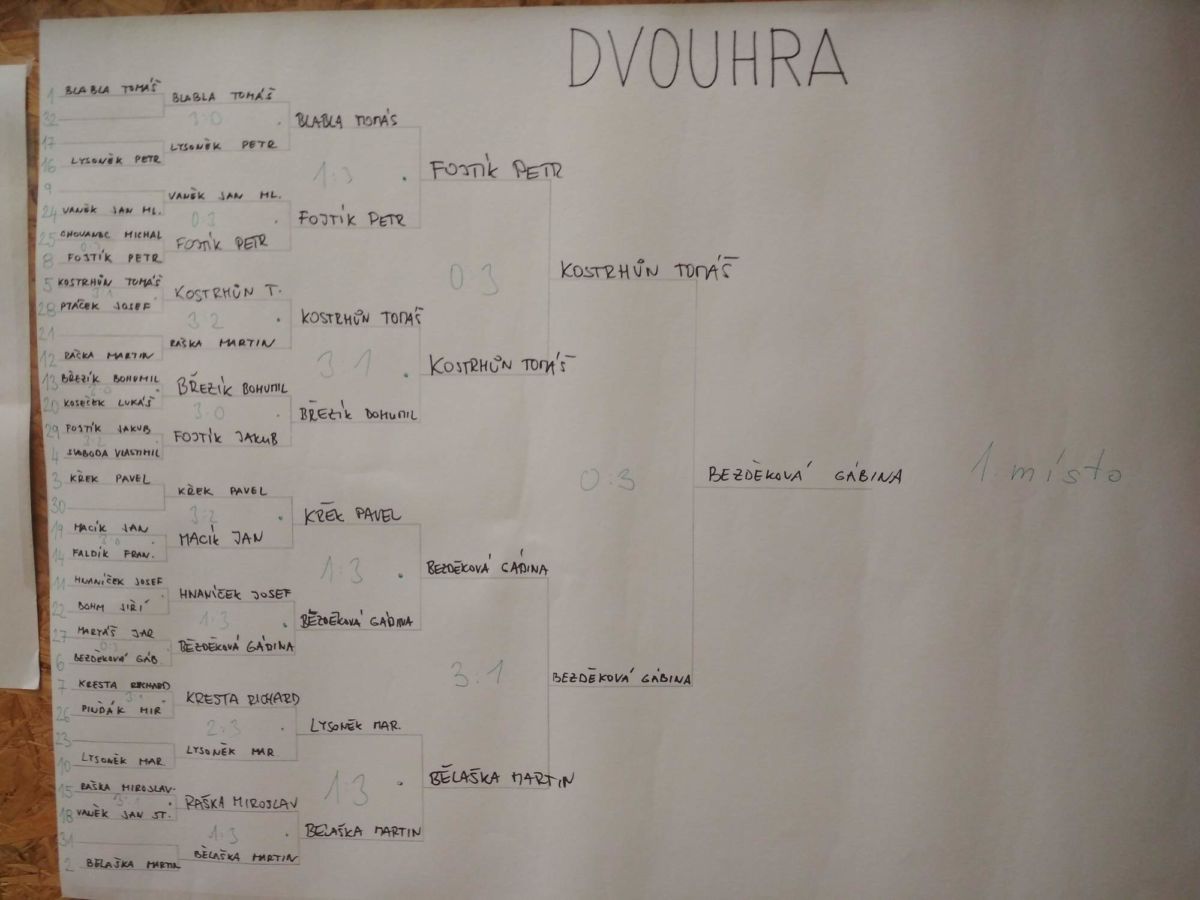 DVOUHRA
1 BLABLA TOMÁŠ
32
17
16 LYSONĚK PETR
9
24 VANĚK JAN ML.
25 CHOVANEC MICHAL
0:3
8 FOJTÍK PETR
5 KOSTRHŮN TOMÁŠ
3:1
28 PTÁČEK JOSEF
21
12 RAŠKA MARTIN
13 BŘEZÍK BOHUMIL
20 KOSEČEK LUKÁŠ
29 FOJTÍK JAKUB
3:2
4 SVOBODA VLASTIMIL
3 KŘEK PAVEL
30
19 MACÍK JAN
3:0
14 FALDÍK FRAN.
11 HNANÍČEK JOSEF
22 BOHM JIŘÍ
27 MARYÁŠ JAR
0:3
6 BEZDĚKOVÁ GÁB.
7 KRESTA RICHARD
26 MIR
23
10 LYSONĚK MAR.
15 RAŠKA MIROSLAV.
3:1
18 VANĚK JAN ST.
31
2 BĚLAŠKA MARTIN
BLABLA TOMÁŠ
3:0
LYSONĚK PETR
VANĚK JAN ML.
0:3
FOJTÍK PETR
KOSTRHŮN T.
3:2
RAŠKA MARTIN
BŘEZÍK BOHUMIL
3:0
FOJTÍK JAKUB
KŘEK PAVEL
3:2
MACÍK JAN
HNANÍČEK JOSEF
1:3
BEZDĚKOVÁ GÁBINA
KRESTA RICHARD
2:3
LYSONĚK MAR
RAŠKA MIROSLAV
1:3
BĚLAŠKA MARTIN
BLABLA TOMÁŠ
1:3
FOJTÍK PETR
KOSTRHŮN TOMÁŠ
3:1
BŘEZÍK BOHUMIL
KŘEK PAVEL
1:3
BEZDĚKOVÁ GÁBINA
LYSONĚK MAR.
1:3
BĚLAŠKA MARTIN
FOJTÍK PETR
0:3
KOSTRHŮN TOMÁŠ
BEZDĚKOVÁ GÁBINA
3:1
BĚLAŠKA MARTIN
KOSTRHŮN TOMÁŠ
0:3
BEZDĚKOVÁ GÁBINA
BEZDĚKOVÁ GÁBINA
1. místo